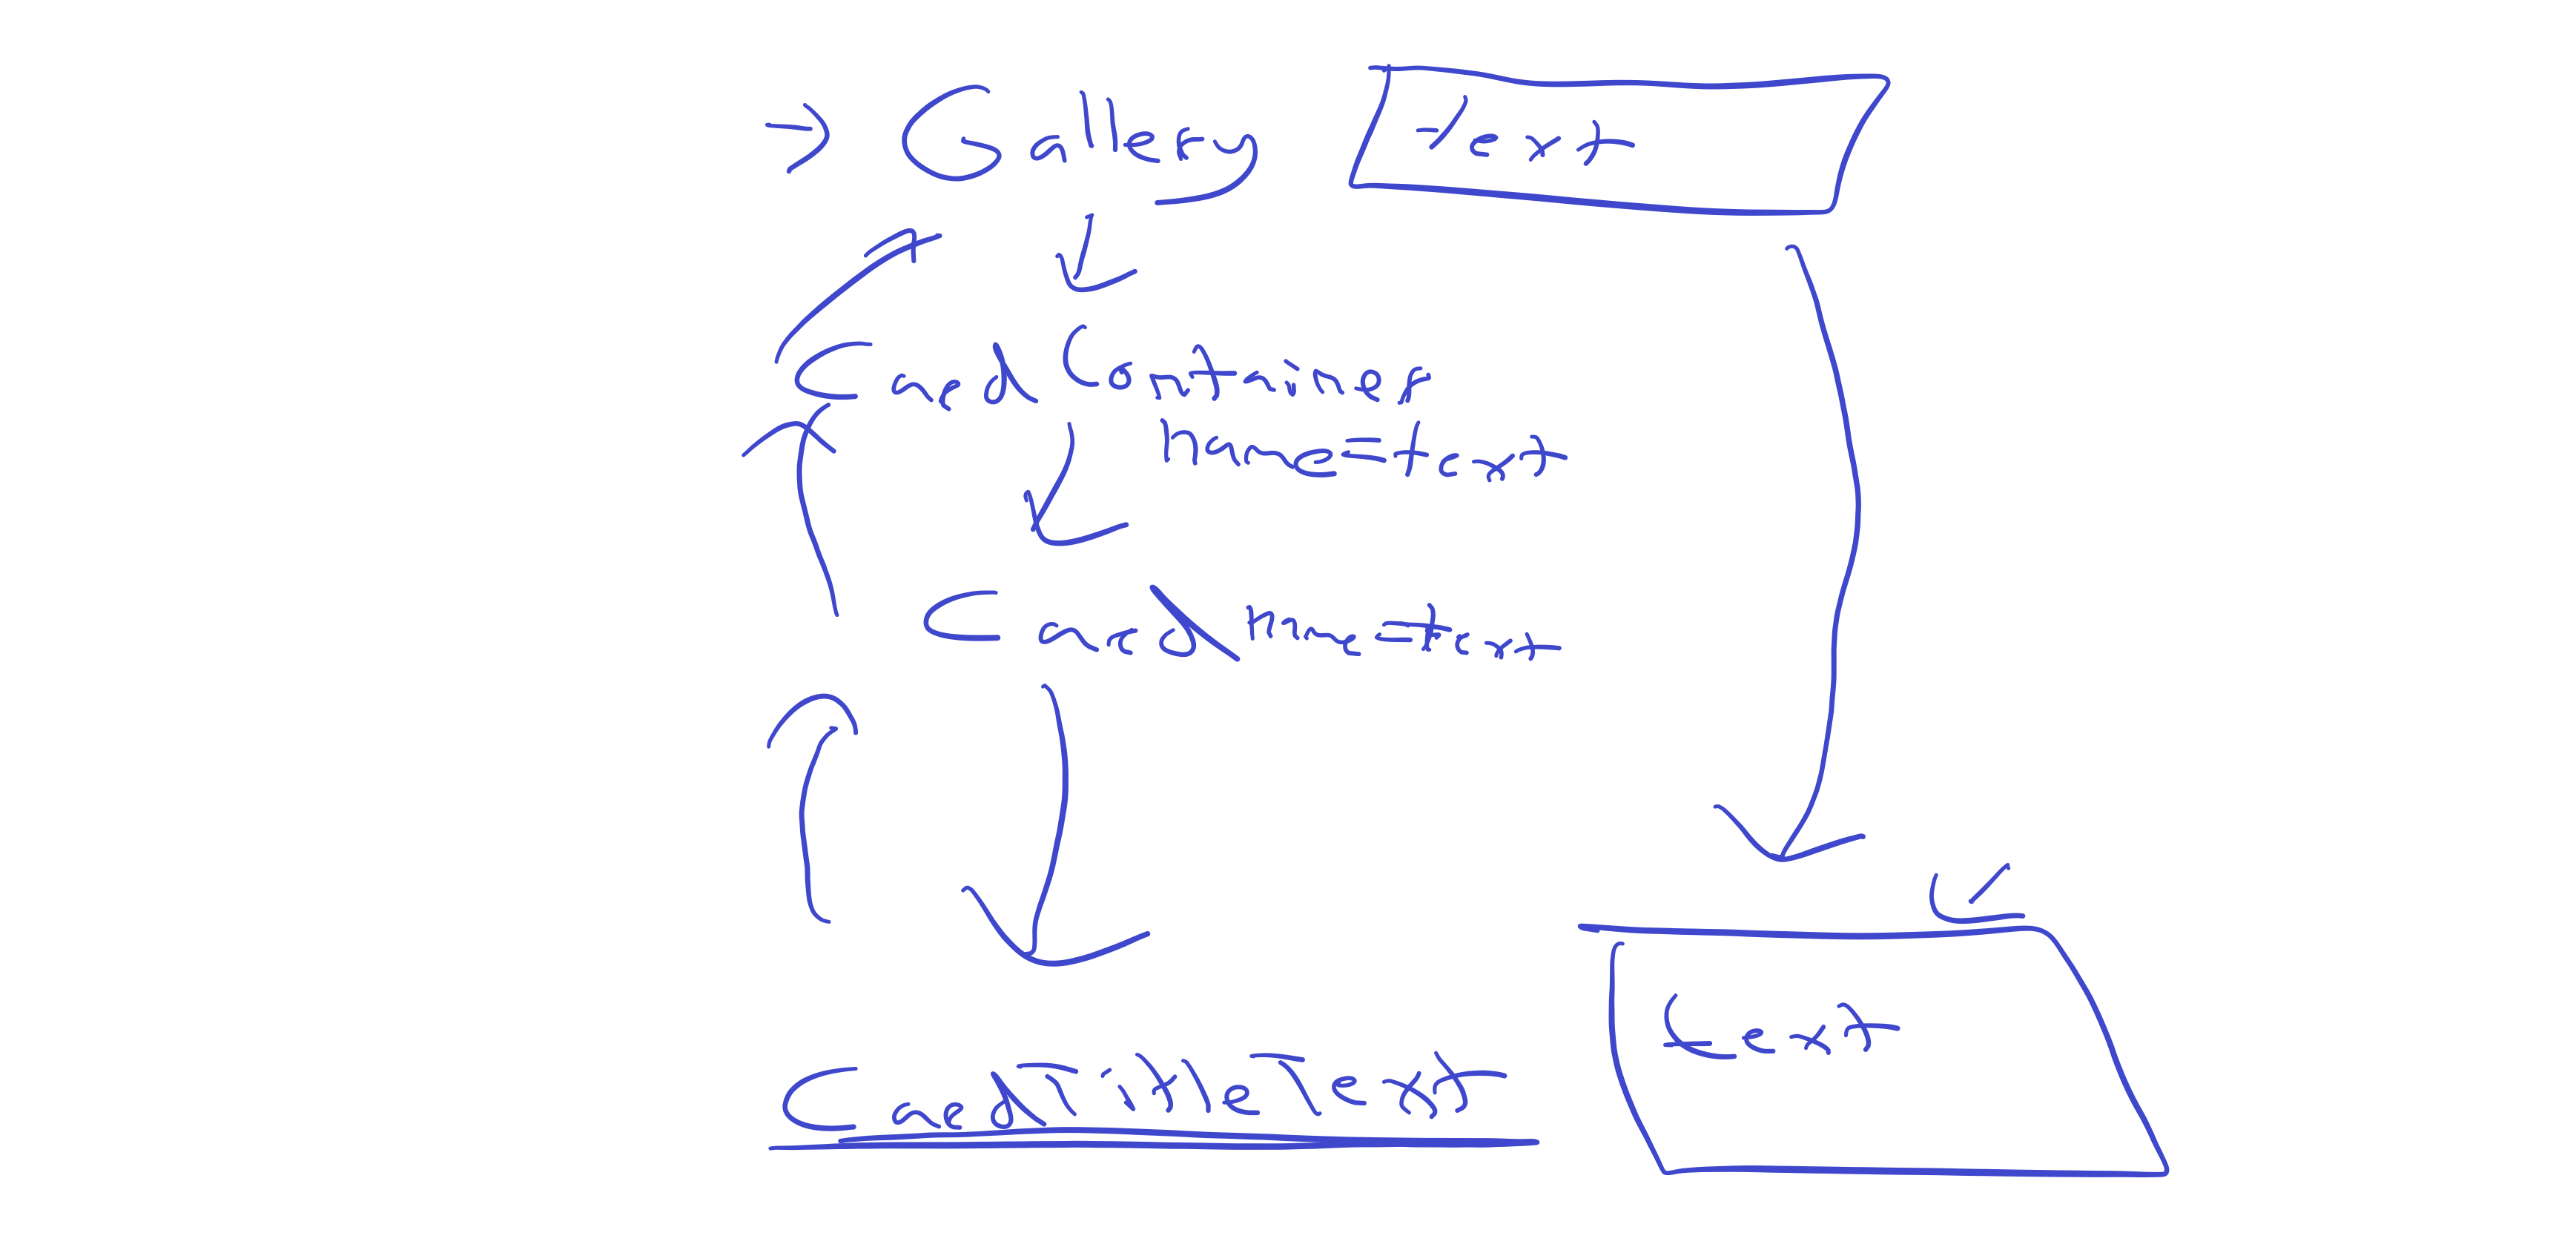 → Gallery text
CardContainer
name=text
Card name=text
CardTitleText
text